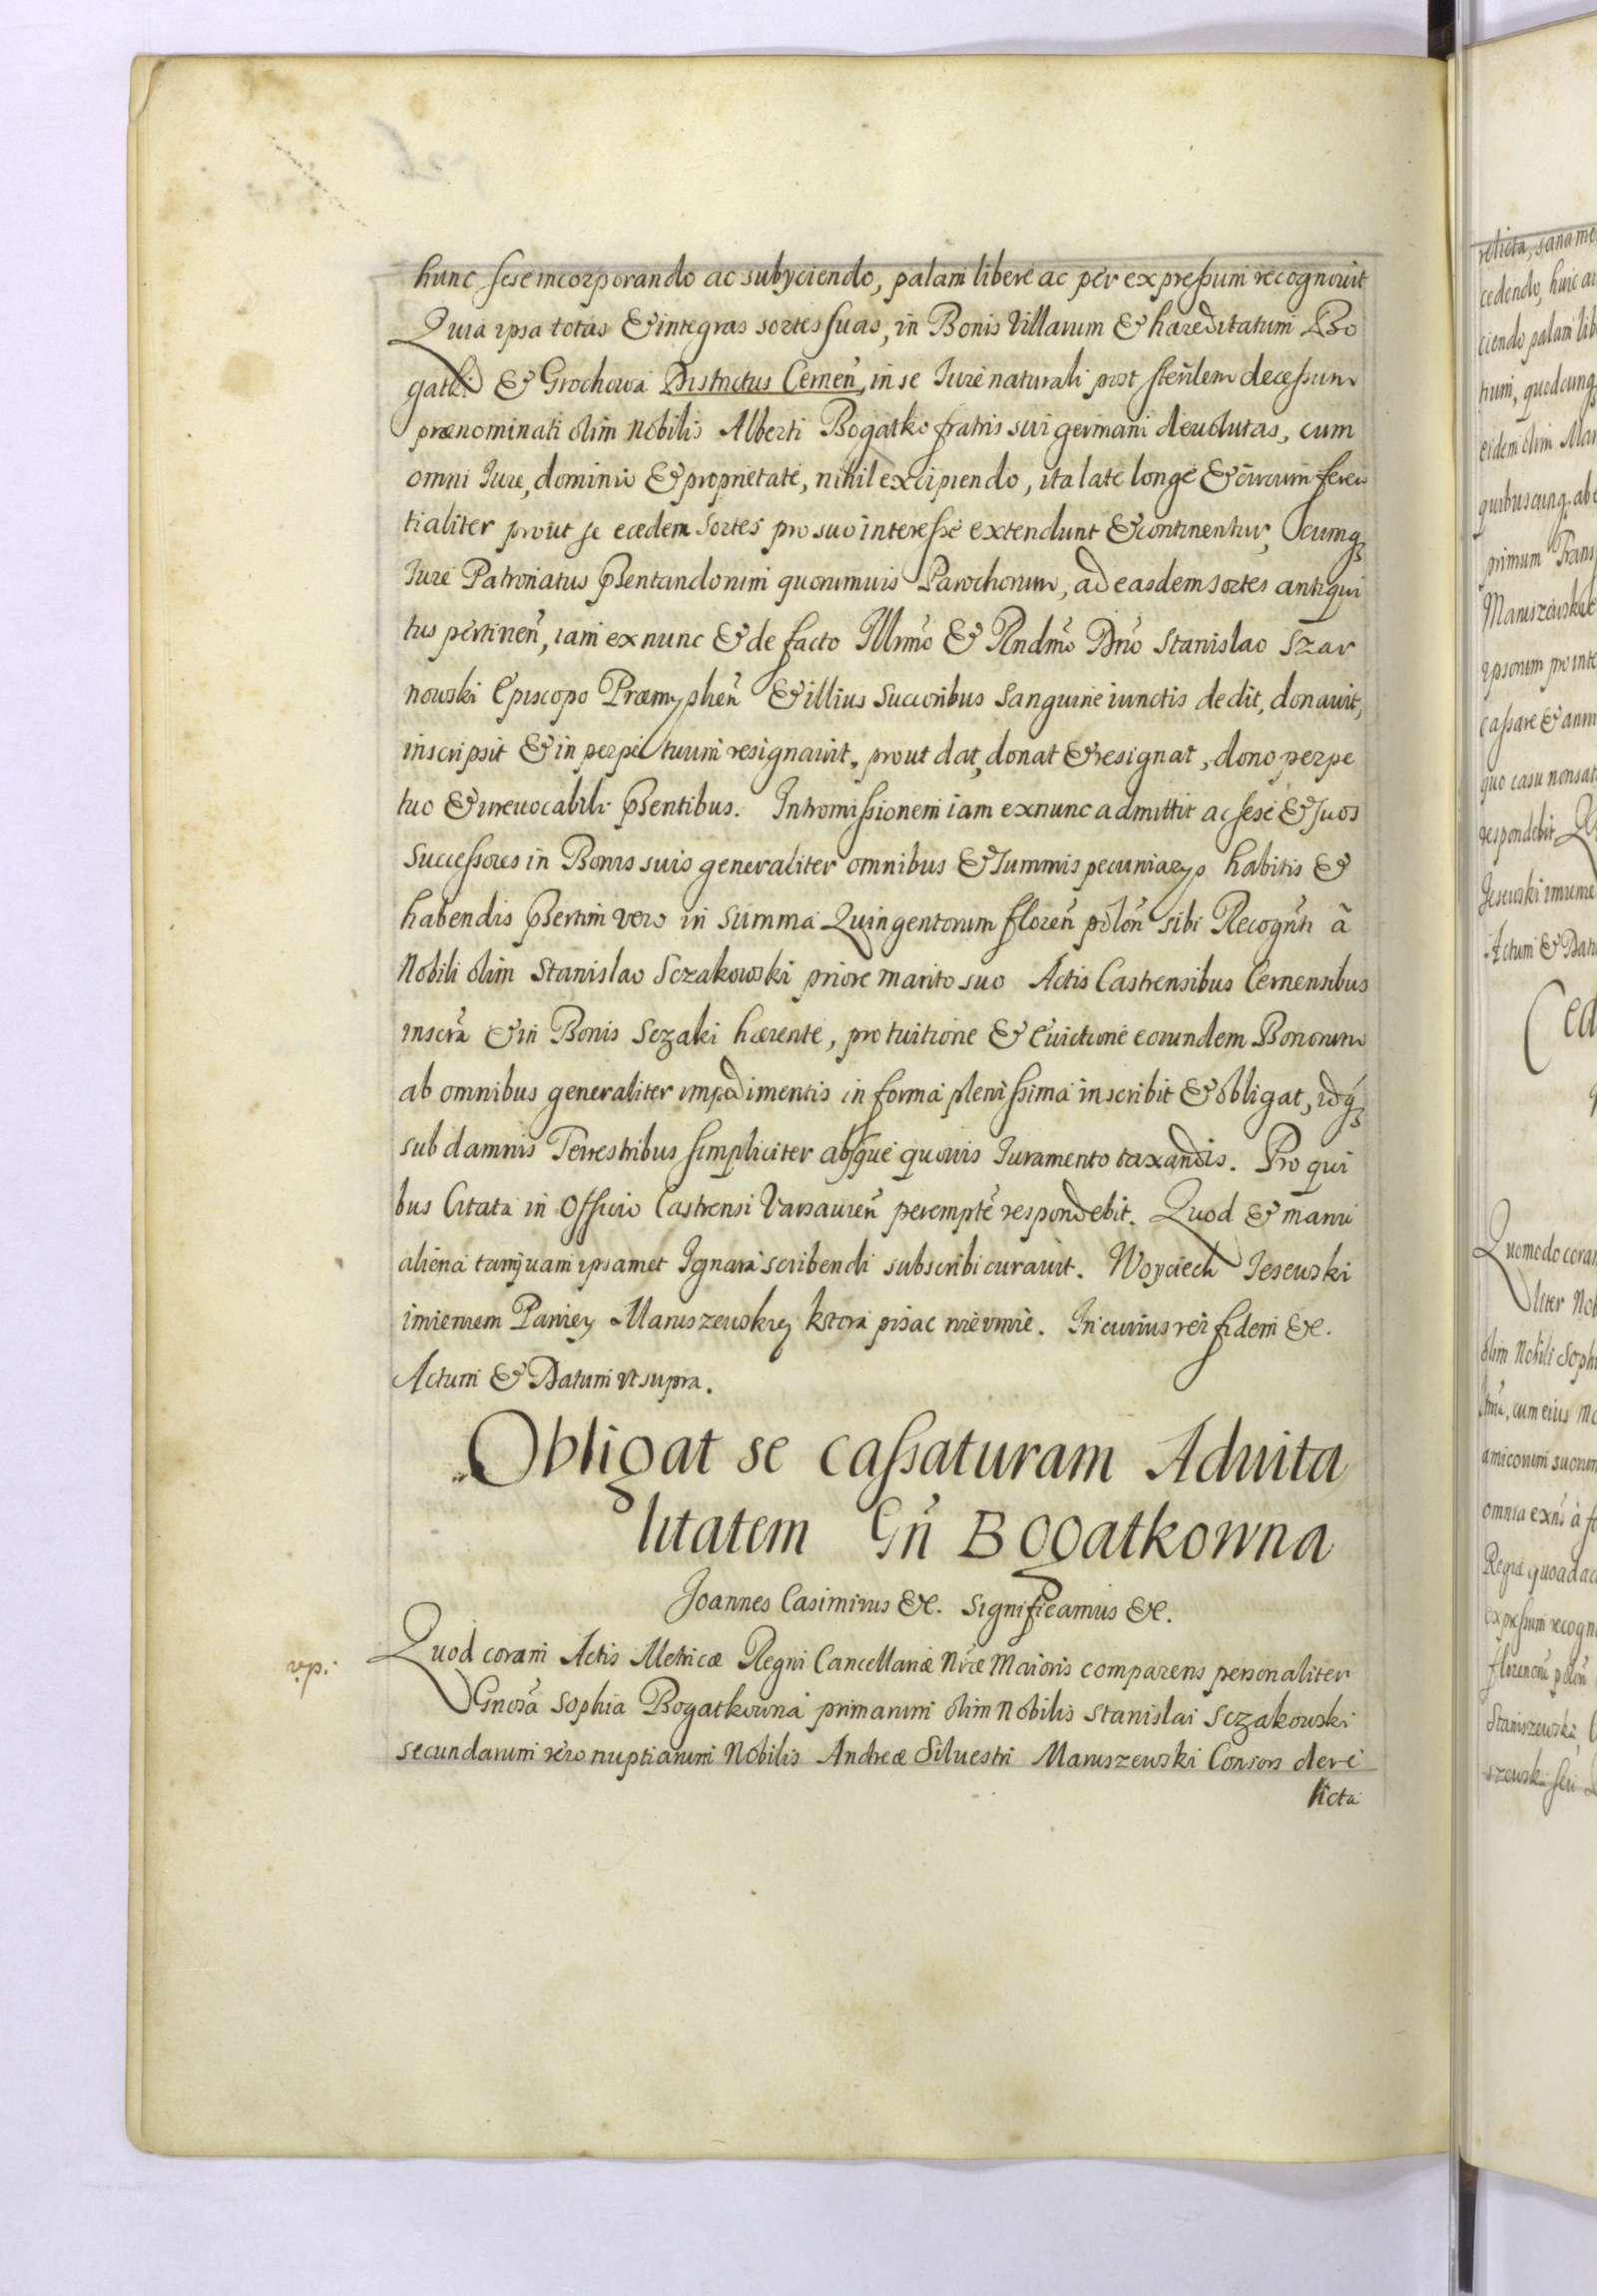 hunc sese incorporando ac subyciendo, palam libere ac per expressum recognovit
Quia ipsa totas & integras sortes suas, in Bonis Villarum & haereditatum Bo
gatki & Grochowa Districtus Cernen̄, in se Iure naturali post sterilem decessum
praenominati olim Nobilis Alberti Bogatko fratris sui germani deuolutas, cum
omni Iure, dominio & proprietate, nihil excipiendo, ita late longe & circumferen
tialiter prout se eaedem sortes pro suo interesse extendunt & continentur, cumq3
Iure Patronatus p̄sentandorum quorumuis Parochorum, ad easdem sortes antiqui
tus pertinen̄, iam ex nunc & de facto Illr̄mo & Rndm̄o Dn̄o Stanislao Szar
nowski Episcopo Praemyslien̄ & illius Succoribus Sanguine iunctis dedit, donauit,
inscripsit & in perpetuum resignauit, prout dat, donat & resignat, dono perpe
tuo & irreuocabili p̄sentibus. Intromissionem iam ex nunc admittit ac sese & suos
Successores in Bonis suis generaliter omnibus & Summis pecuniarys habitis &
habendis p̄sertim vero in Summa Quingentorum floren̄ polōn sibi Recogn̄ti ā
Nobili olim Stanislao Sczakowski priore marito suo Actis Castrensibus Cernensibus
inscrā & in Bonis Sczaki haerente, pro tuitione & Euictione eorundem Bonorum
ab omnibus generaliter impedimentis in forma plenissima inscribit & obligat, idq3
sub damnis Terrestribus simpliciter absque quouis Iuramento taxandis. Pro qui
bus Citata in Officio Castrensi Varsauien̄ perempt̄e respondebit. Quod & manu
aliena tamquam ipsamet Ignara scribendi subscribi curauit. Woyciech Jeseuski
imieniem Paniey Maruszewskiey ktora pisac nievmie. In cuius rei fidem &c.
Actum & Datum vt supra.
Obligat se cassaturam Aduita
litatem Gn̄ Bogatkowna
Joannes Casimirus &c. Significamus &c.
vp.
Quod coram Actis Metricae Regni Cancellariae Nr̄ae Maioris comparens personaliter
Gnosā Sophia Bogatkowna primarum olim Nobilis Stanislai Sczakowski
secundarum vero nuptiarum Nobilis Andreae Siluestri Maruszewski Consors dere
licta